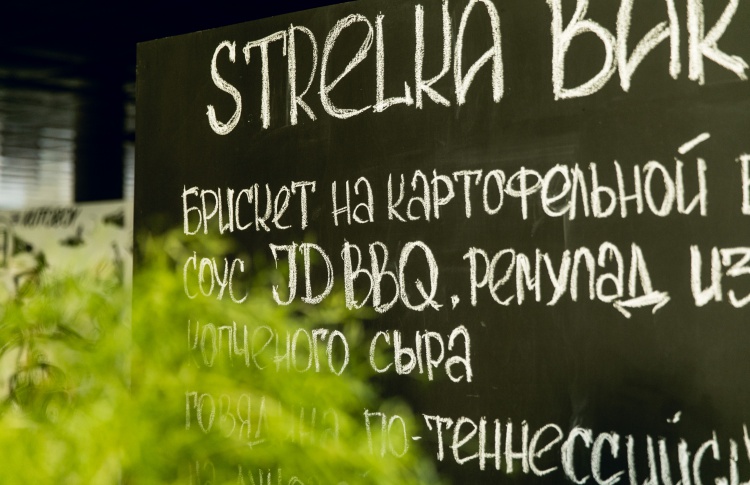 STRELKA BAR
БРИСКЕТ НА КАРТОФЕЛЬНОЙ
СОУС JD BBQ, РЕМУЛАД ИЗ
КОПЧЕНОГО СЫРА
ГОВЯДИНА ПО-ТЕННЕССИЙСК